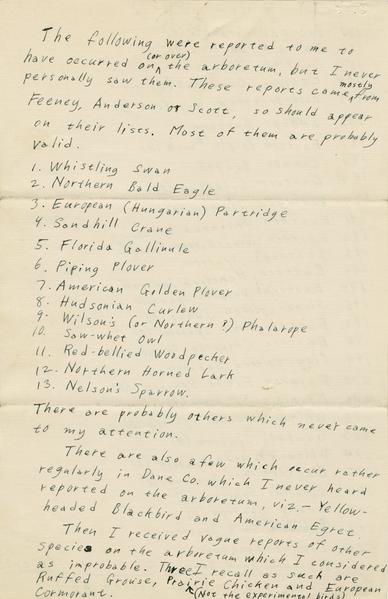 The following were reported to me to
have occurred on (or over) the arboretum, but I never
personally saw them. These reports came mostly from
Feeney, Anderson or Scott, so should appear
on their lists. Most of them are probably
valid.
1. Whistling Swan
2. Northern Bald Eagle
3. European (Hungarian) Partridge
4. Sandhill Crane
5. Florida Gallinule
6. Piping Plover
7. American Golden Plover
8. Hudsonian Curlew
9. Wilson's (or Northern?) Phalarope
10. Saw-whet Owl
11. Red-bellied Woodpecker
12. Northern Horned Lark
13. Nelson's Sparrow.
There are probably others which never came
to my attention.
There are also a few which occur rather
regularly in Dane Co. which I never heard
reported on the arboretum, viz. - Yellow-
headed Blackbird and American Egret.
Then I received vague reports of other
species on the arboretum which I considered
as improbable. Three I recall as such are
Ruffed Grouse, Prairie Chicken and European
Cormorant. (Not the experimental birds)